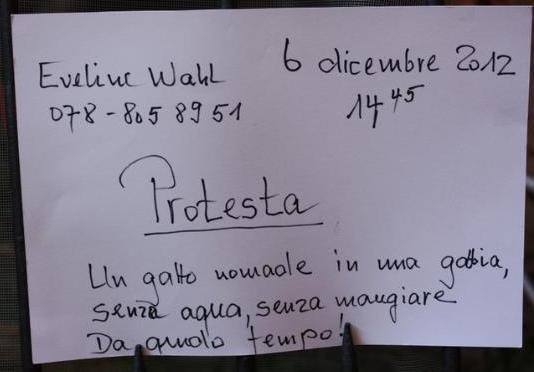 Eveline Wahl 6 dicembre 2012
078-805 89 51 14 45
Protesta
Un gatto nomade in una gabbia,
senza aqua, senza mangiare
Da quado tempo!